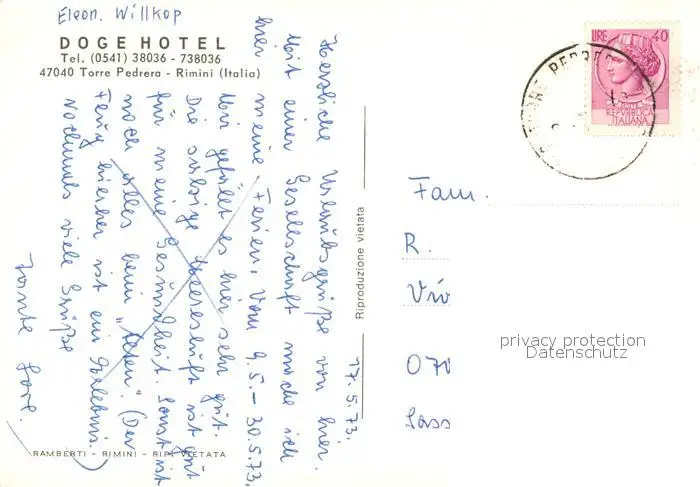 Eleon. Willkop
DOGE HOTEL
Tel. (0541) 38036 - 738036
47040 Torre Pedrera - Rimini (Italia)
17.5.73.
Herzliche Urlaubsgrüße von hier.
Mit einer Gesellschaft mache ich
hier meine Ferien. Vom 9.5.-30.5.73.
Mir gefällt es hier sehr gut.
Die salzige Meeresluft ist gut
für meine Gesundheit. Sonst ist
noch alles beim "alten". (Der
Flug hierher ist ein Erlebnis.
Nochmals viele Grüße
Tante Lore.
RAMBERTI - RIMINI - RIP. VIETATA
Riproduzione vietata
LIRE 40
REPVBBLICA
ITALIANA
TORRE PEDRERA
Fam.
R.
Vio
070
privacy protection
Datenschutz